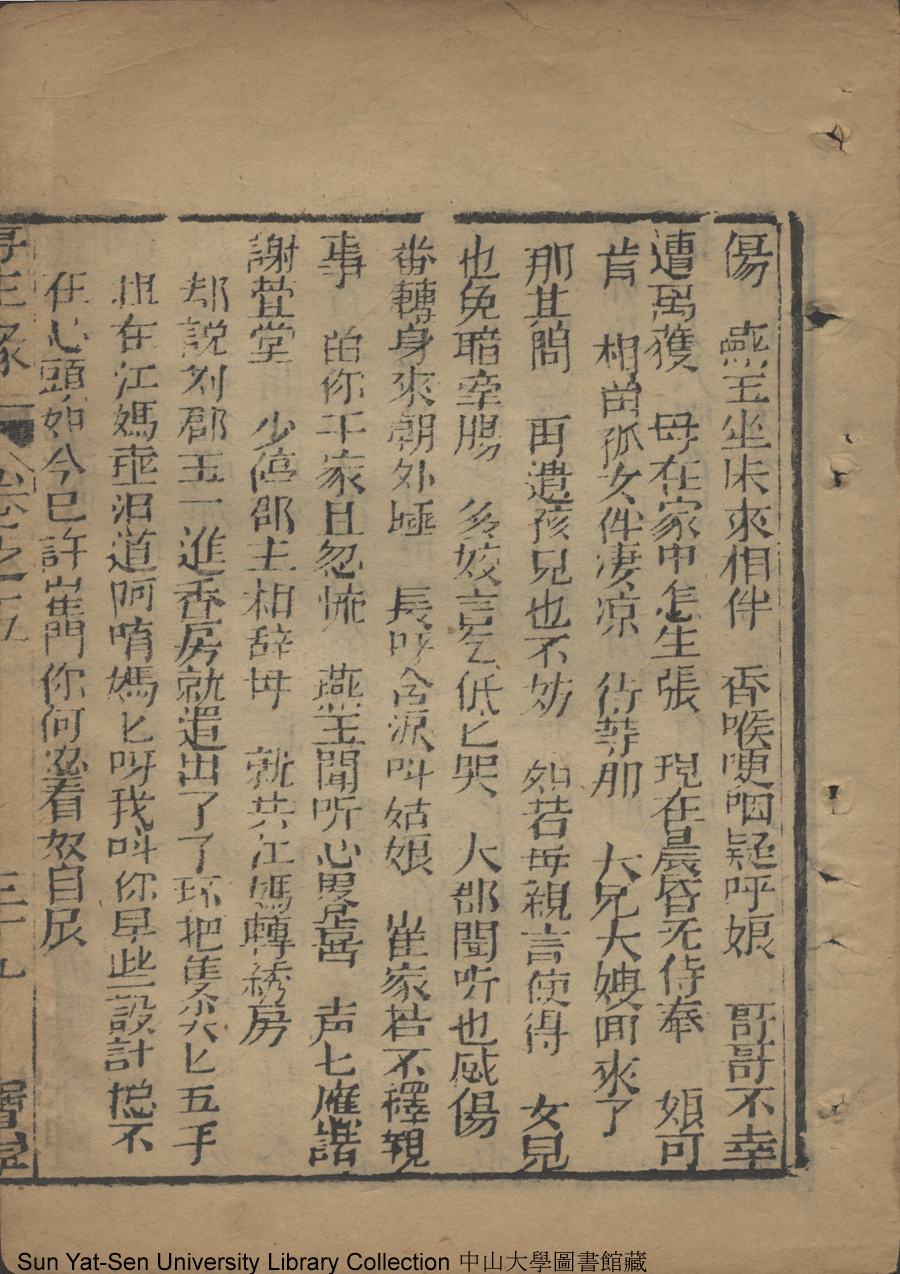 傷　燕玉坐床來相伴　香喉哽咽疑呼娘　哥哥不幸
遭禹獲　母在家中怎生張　現在晨昏无侍奉　娘可
肯　相畄孤女伴凄凉　待等那　大兄大嫂囬來了
那其間　再遣孩兒也不妨　如若母親言使得　女兒
也免暗牽腸　多姣言乞低匕哭　大郡聞听也感傷
番轉身來朝外睡　長呼含淚叫姑娘　崔家若不擇親
事　畄你于家且忽慌　燕玉聞听心畧喜　声七應諾
謝萱堂　少停郡主相辞母　就共江媽轉綉房
却説刘郡玉一進香房就遣出了丫环把隻　匕玉手
扭在江媽　泪道呵唷媽匕呀我叫你早些設計揔不
在心頭如今巳許崔門你何忍看奴自尽
再生緣　卷之十五　三十九　堂
Sun Yat-Sen University Library Collection 中山大學圖書館藏